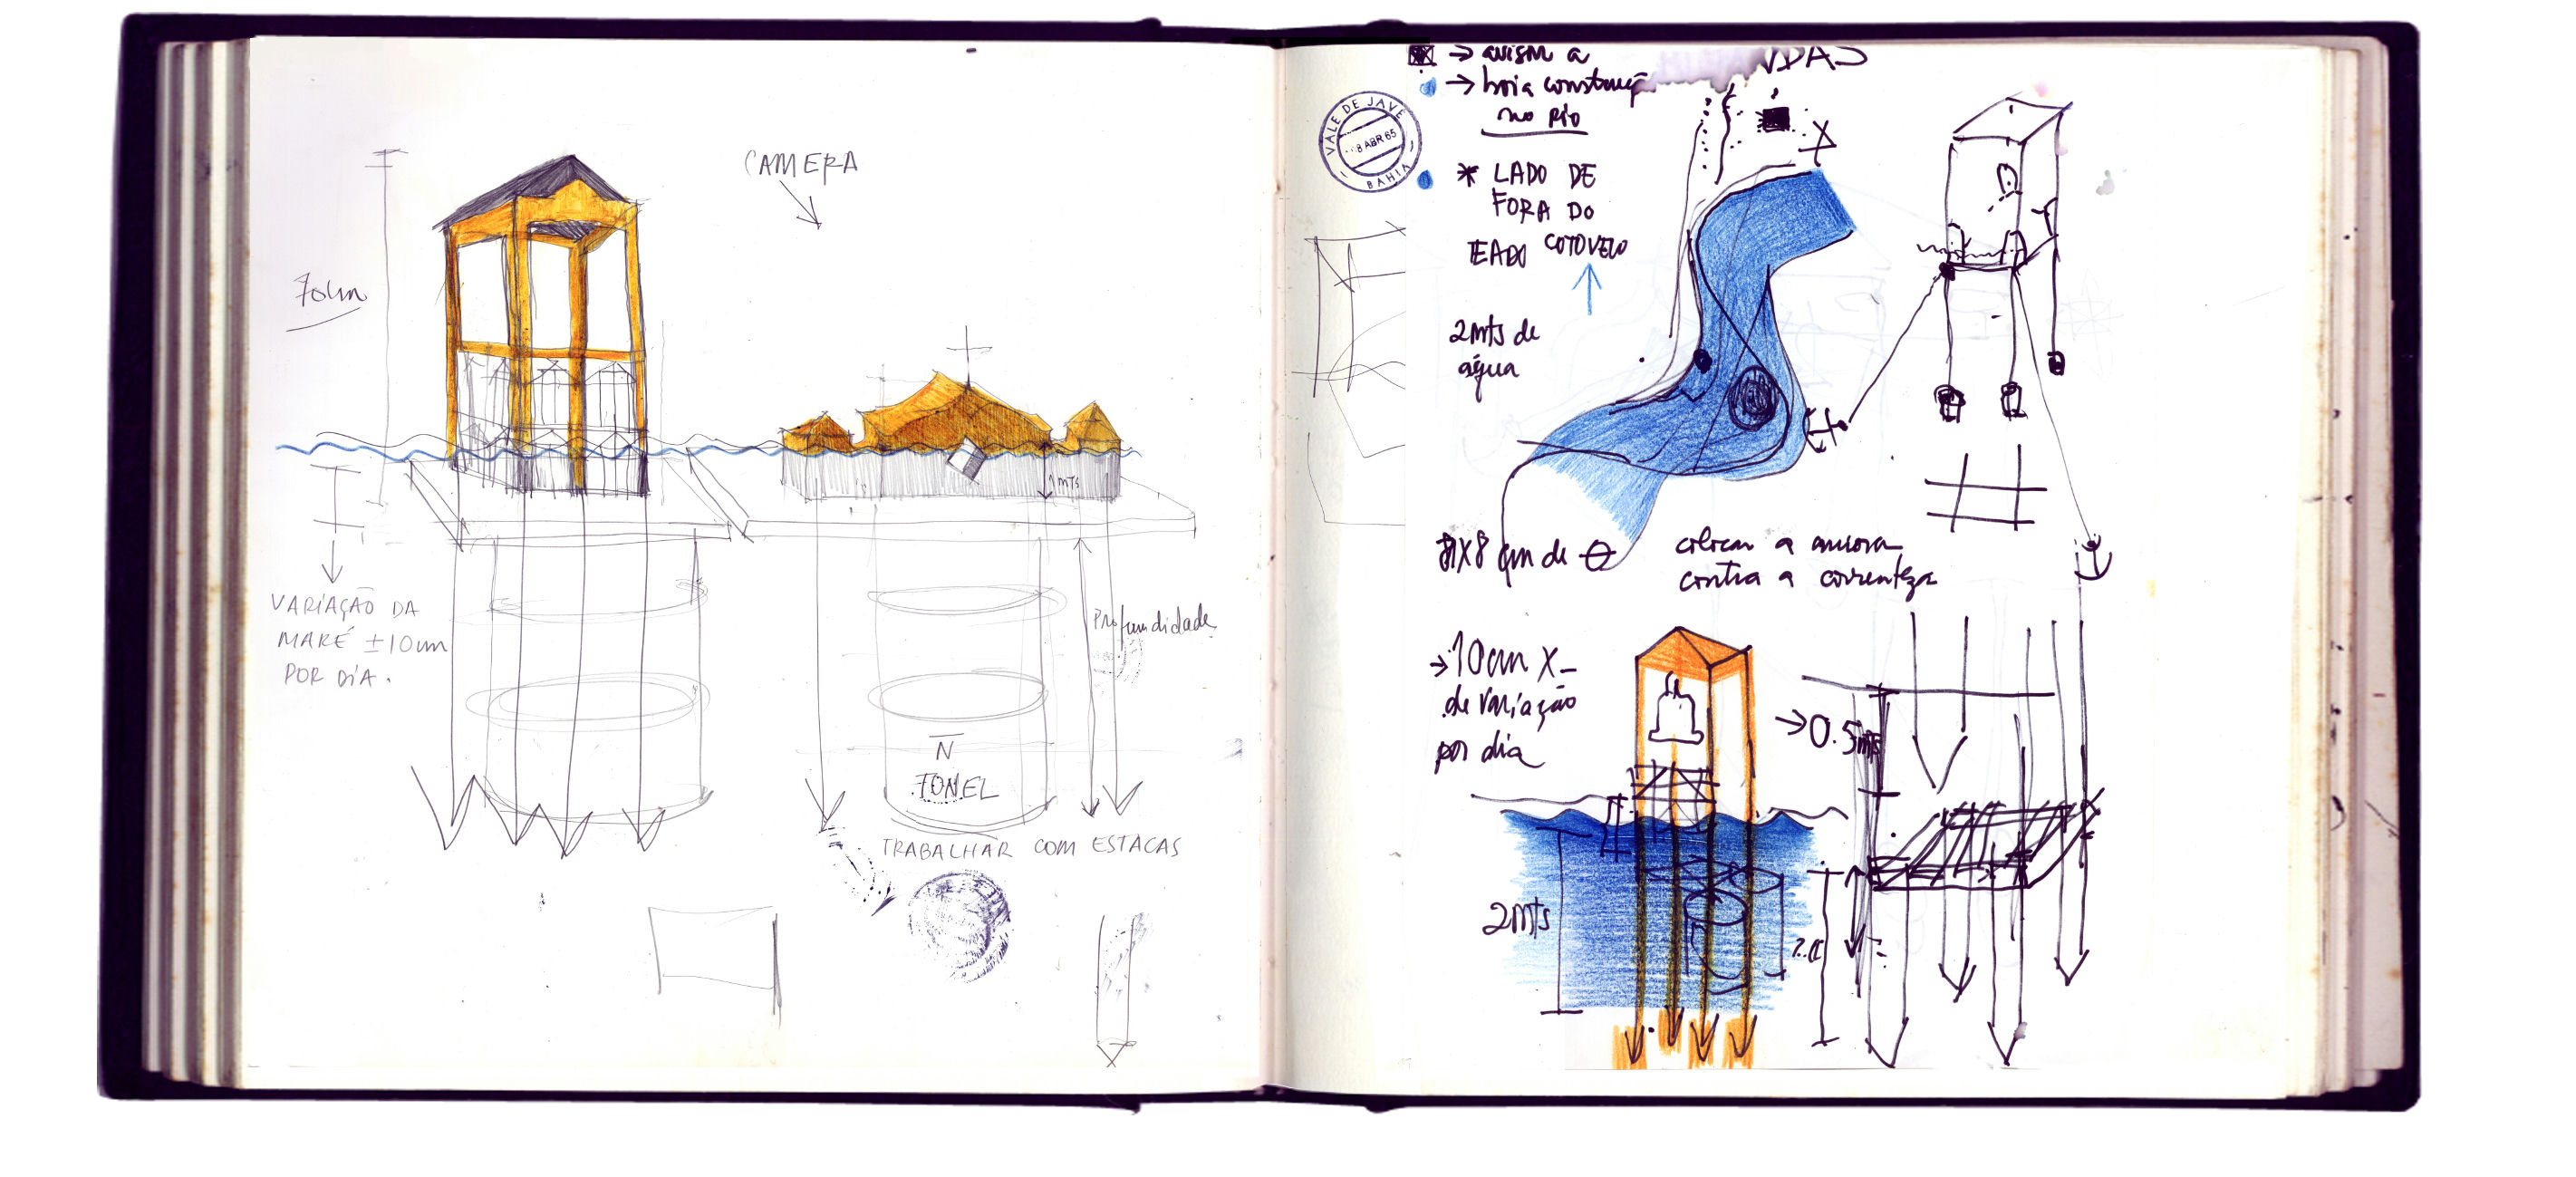 CAMERA
70cm
1mts
VARIAÇÃO DA
MARÉ ±10cm
POR DIA.
Profundidade
N
TONEL
TRABALHAR COM ESTACAS
→ avisar a
→ boia construçã
no Rio
VALE DE JAVÉ
8 ABR 65
BAHIA
* LADO DE
FORA DO
COTOVELO
2mts de
água
X8 cm de
colocar a ancora
contra a correnteza
→10cm X-
de variação
por dia
→0.5mts
2mts